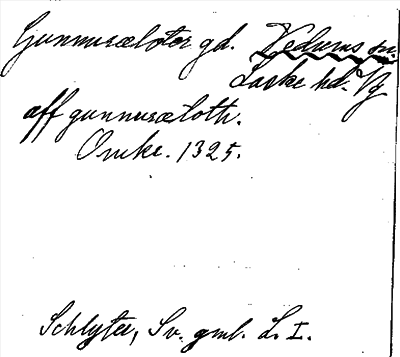 Gunnusælotor gd. Vedums sn.
Laske hd. Vg
aff gunnusæloth.
Omkr. 1325.
Schlyter, Sv. gml. L. I.